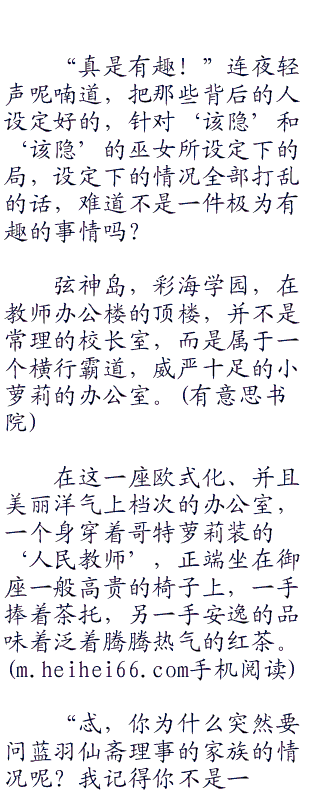 “真是有趣！”连夜轻
声呢喃道，把那些背后的人
设定好的，针对‘该隐’和
‘该隐’的巫女所设定下的
局，设定下的情况全部打乱
的话，难道不是一件极为有
趣的事情吗？
弦神岛，彩海学园，在
教师办公楼的顶楼，并不是
常理的校长室，而是属于一
个横行霸道，威严十足的小
萝莉的办公室。(有意思书
院)
在这一座欧式化、并且
美丽洋气上档次的办公室，
一个身穿着哥特萝莉装的
‘人民教师’，正端坐在御
座一般高贵的椅子上，一手
捧着茶托，另一手安逸的品
味着泛着腾腾热气的红茶。
(m.heihei66.com手机阅读)
“忒，你为什么突然要
问蓝羽仙斋理事的家族的情
况呢？我记得你不是一